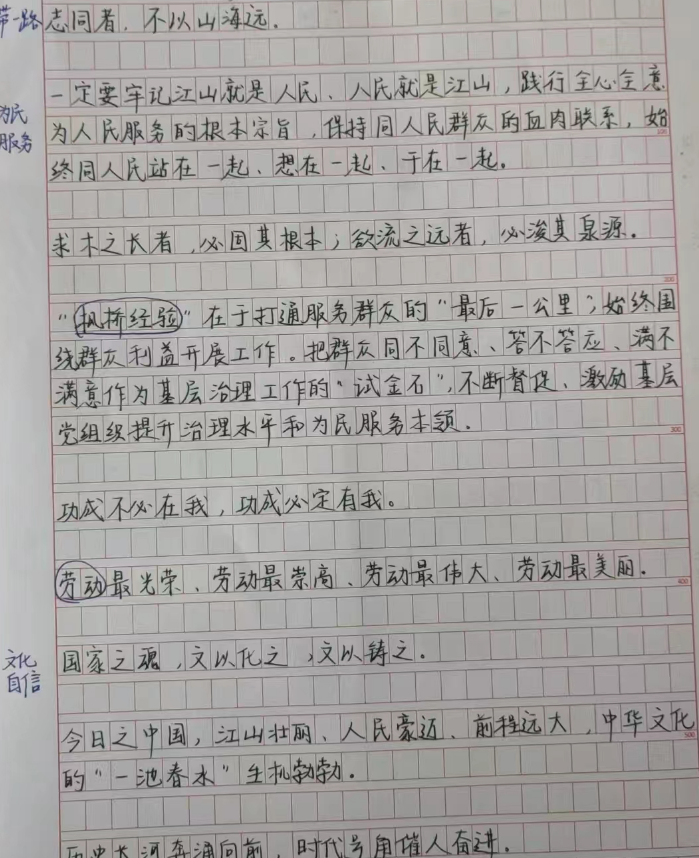 带一路
志同者，不以山海远。
一定要牢记江山就是人民、人民就是江山，践行全心全意
为民
服务
为人民服务的根本宗旨，保持同人民群众的血肉联系，始
终同人民站在一起、想在一起、干在一起。
求木之长者，必固其根本；欲流之远者，必浚其泉源。
“枫桥经验”在于打通服务群众的“最后一公里”，始终围
绕群众利益开展工作。把群众同不同意、答不答应、满不
满意作为基层治理工作的“试金石”，不断督促、激励基层
党组织提升治理水平和为民服务本领。
功成不必在我，功成必定有我。
劳动最光荣、劳动最崇高、劳动最伟大、劳动最美丽。
文化
自信
国家之魂，文以化之，文以铸之。
今日之中国，江山壮丽、人民豪迈、前程远大，中华文化
的“一池春水”生机勃勃。
历史长河奔涌向前，时代号角催人奋进。